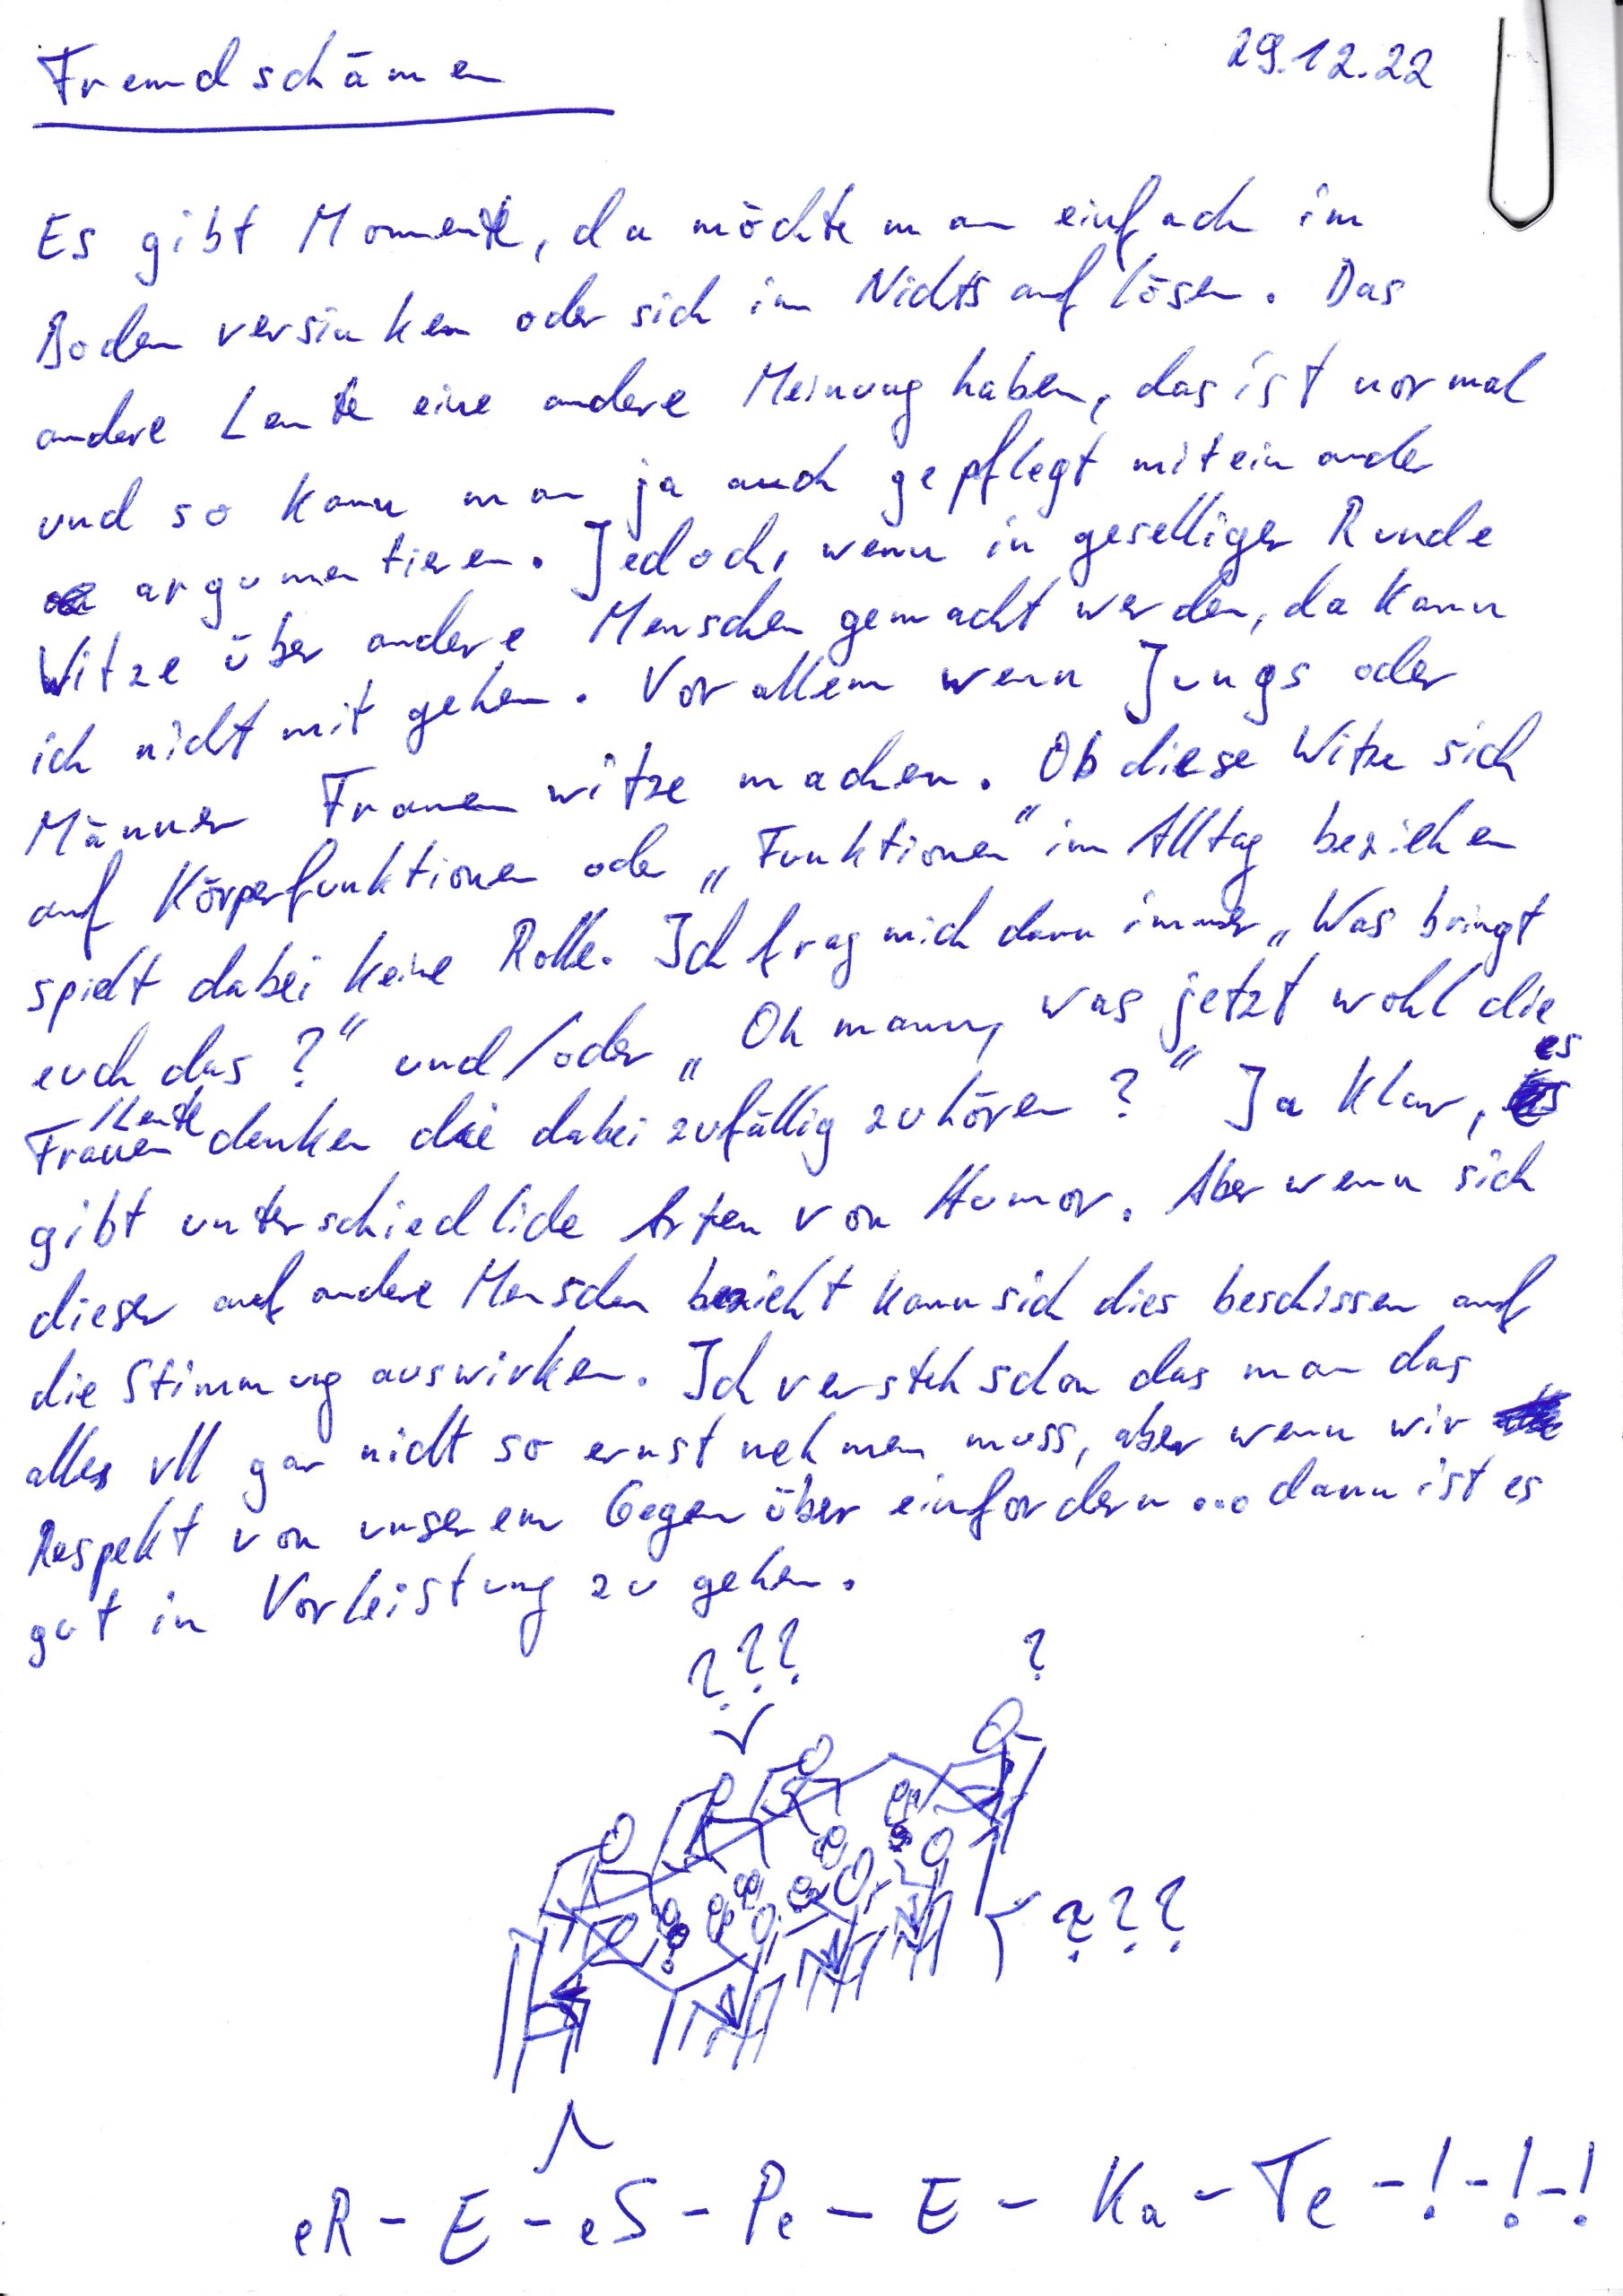 Fremdschämen
29.12.22
Es gibt Momente, da möchte man einfach im
Boden versinken oder sich im Nichts auflösen. Das
andere Leute eine andere Meinung haben, das ist normal
und so kann man ja auch gepflegt miteinander
argumentieren. Jedoch, wenn in geselliger Runde
Witze über andere Menschen gemacht werden, da kann
ich nicht mit gehen. Vor allem wenn Jungs oder
Männer Frauenwitze machen. Ob diese Witze sich
auf Körperfunktionen oder „Funktionen" im Alltag beziehen
spielt dabei keine Rolle. Ich frag mich dann immer „Was bringt
euch das?" und/oder „Oh mann, was jetzt wohl die
Frauen/Leute denken die dabei zufällig zuhören?" Ja klar, es
gibt unterschiedliche Arten von Humor. Aber wenn sich
dieser auf andere Menschen bezieht kann sich dies beschissen auf
die Stimmung auswirken. Ich versteh schon das man das
alles vll gar nicht so ernst nehmen muss, aber wenn wir
Respekt von unserem Gegenüber einfordern...dann ist es
gut in Vorleistung zu gehen.
??? ?
???
eR - E - eS - Pe - E - Ka - Te - ! - ! - !